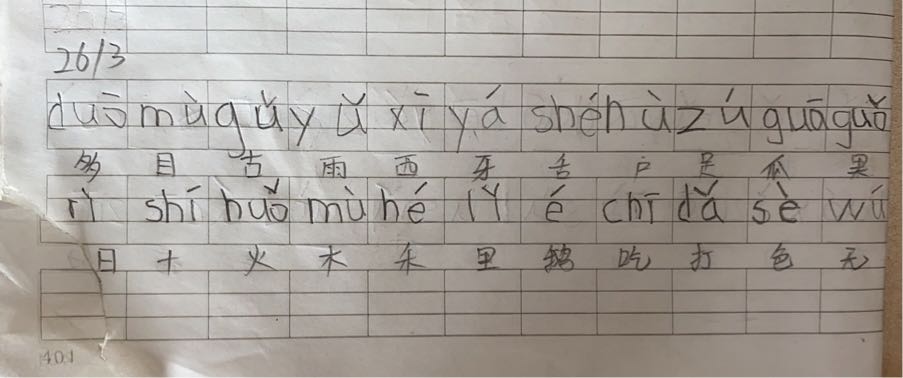 26/3
duō mù gǔ yǔ xī yá shé hù zú guā guǒ
多 目 古 雨 西 牙 舌 户 足 瓜 果
rì shí huǒ mù hé lǐ é chī dǎ sè wú
日 十 火 木 禾 里 鹅 吃 打 色 无
401